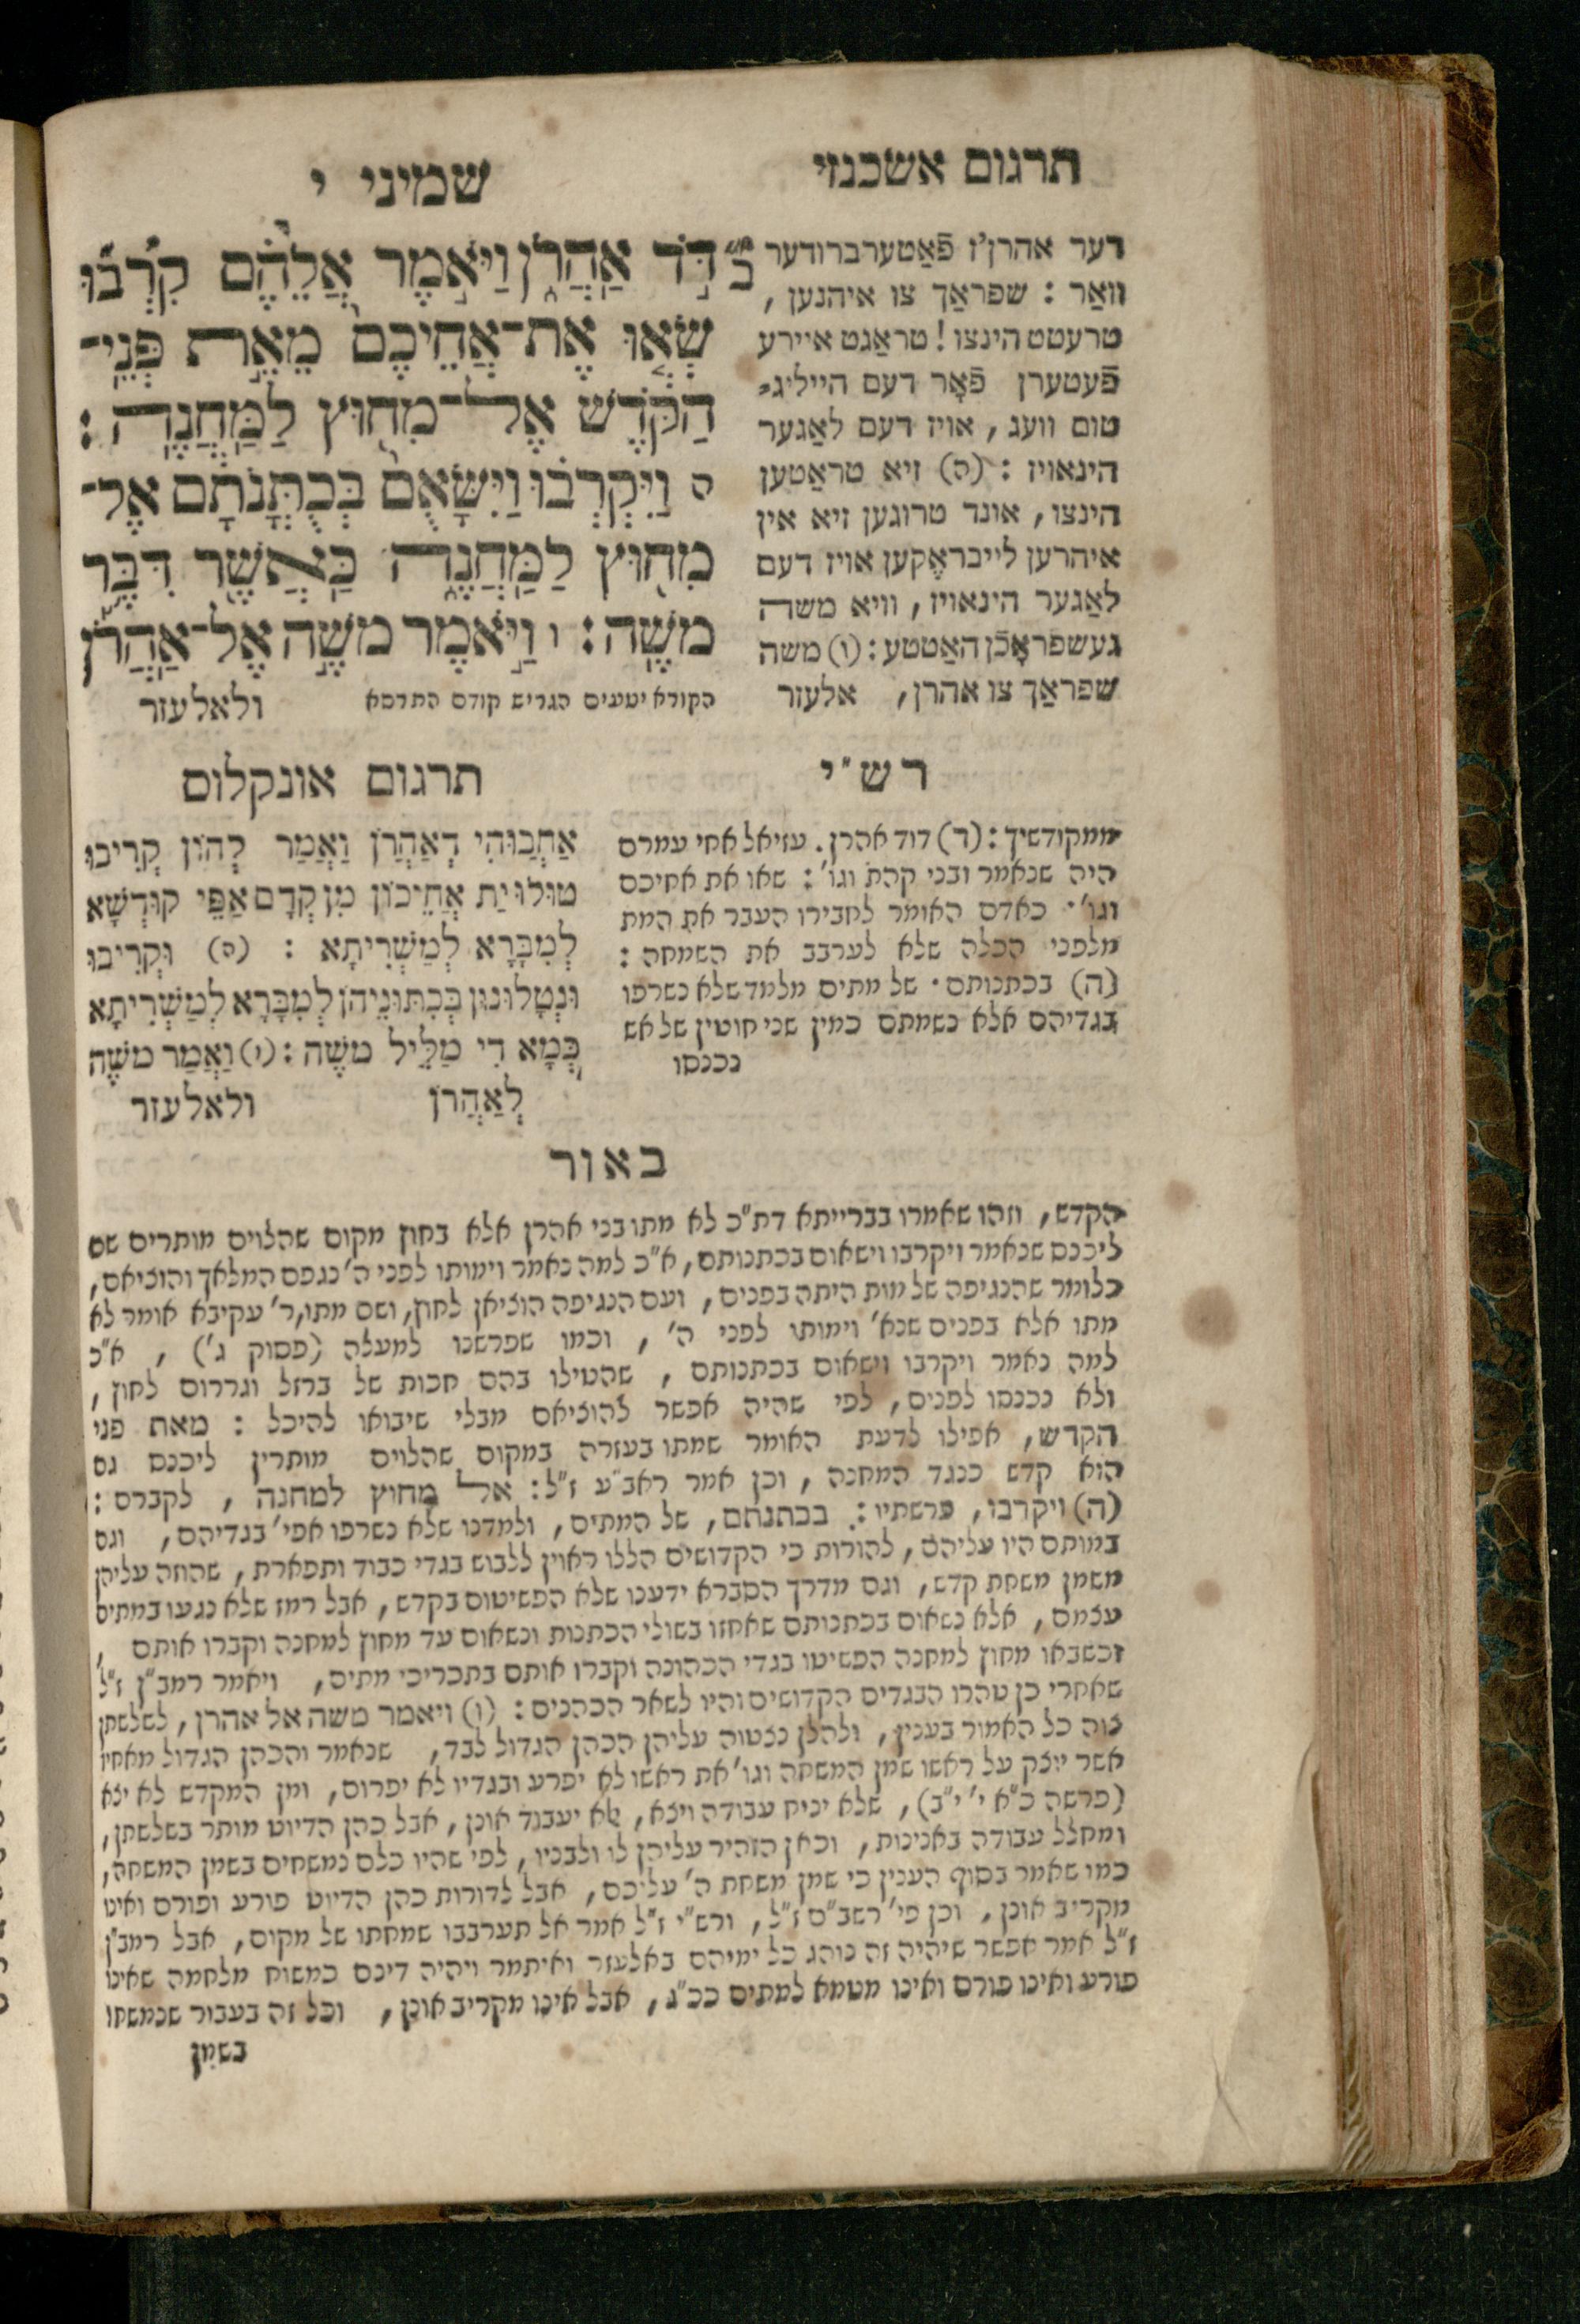 תרגום אשכנזי
שמיני י
דּ֣ד אַהֲרֹ֑ן וַיֹּ֣אמֶר אֲלֵהֶ֗ם קִ֠רְב֞וּ
שְׂא֤וּ אֶת־אֲחֵיכֶם֙ מֵאֵ֣ת פְּנֵי־
הַקֹּ֔דֶשׁ אֶל־מִח֖וּץ לַמַּחֲנֶֽה׃
ה וַֽיִּקְרְב֗וּ וַיִּשָּׂאֻם֙ בְּכֻתֳּנֹתָ֔ם אֶל־
מִח֖וּץ לַֽמַּחֲנֶ֑ה כַּאֲשֶׁ֖ר דִּבֶּ֥ר
מֹשֶֽׁה׃ ו וַיֹּ֣אמֶר מֹשֶׁ֣ה אֶֽל־אַהֲרֹ֡ן
הקורא יטעים הגריש קודם התרסא
ולאלעזר
דער אהרן'ז פֿאַטערברודער
וואַר : שפראַך צו איהנען ,
טרעטט הינצו ! טראַגט איירע
פֿעטערן פֿאָר דעם הייליג־
טום וועג , אויז דעם לאַגער
הינאויז : (ה) זיא טראַטען
הינצו , אונד טרוגען זיא אין
איהרען לייבראָקען אויז דעם
לאַגער הינאויז , וויא משה
געשפראָכֿן האַטטע : (ו) משה
שפראַך צו אהרן , אלעזר
רש"י
ממקודשיך : (ד) דוד אהרן . עזיאל אחי עמרם
היה שנאמר ובני קהת וגו' : שאו את אחיכם
וגו' . כאדם האומר לחבירו העבר את המת
מלפני הכלה שלא לערבב את השמחה :
(ה) בכתנותם . של מתים מלמד שלא נשרפו
בגדיהם אלא נשמתם כמין שני חוטין של אש
נכנסו
תרגום אונקלוס
אַחְבוּהִי דְאַהֲרֹן וַאֲמַר לְהוֹן קְרִיבוּ
טוּלוּ יַת אֲחֵיכוֹן מִן קֳדָם אַפֵּי קוּדְשָׁא
לְמִבָּרָא לְמַשְׁרִיתָא : (ה) וּקְרִיבוּ
וּנְטָלוּנוּן בְּכִתּוּנֵיהֹן לְמִבָּרָא לְמַשְׁרִיתָא
כְּמָא דִי מַלֵּיל משֶׁה : (ו) וַאֲמַר משֶׁה
לְאַהֲרֹן
ולאלעזר
באור
הקדש , וזהו שאמרו בברייתא דת"כ לא מתו בני אהרן אלא בחוץ מקום שהלוים מותרים שם
ליכנס שנאמר ויקרבו וישאום בכתנותם , א"כ למה נאמר וימותו לפני ה' נגפם המלאך והוציאם ,
כלומר שהנגיפה של מות היתה בפנים , ועם הנגיפה הוציאן לחוץ , ושם מתו , ר' עקיבא אומר לא
מתו אלא בפנים שנא' וימותו לפני ה' , וכמו שפרשנו למעלה (פסוק ג') , א"כ
למה נאמר ויקרבו וישאום בכתנותם , שהטילו בהם חכות של ברזל וגררום לחוץ ,
ולא נכנסו לפנים , לפי שהיה אפשר להוציאם מבלי שיבואו להיכל : מאת פני
הקדש , אפילו לדעת האומר שמתו בעזרה במקום שהלוים מותרין ליכנס גם
הוא קדש כנגד המחנה , וכן אמר ראב"ע ז"ל : אל מחוץ למחנה , לקברם :
(ה) ויקרבו , פרשתיו : בכתנתם , של המתים , ולמדנו שלא נשרפו אפי' בגדיהם , וגם
במותם היו עליהם , להורות כי הקדושים הללו ראוין ללבוש בגדי כבוד ותפארת , שהוזה עליהן
משמן משחת קדש , וגם מדרך הסברא ידענו שלא הפשיטום בקדש , אבל רמז שלא נגעו במתים
עצמם , אלא נשאום בכתנותם שאחזו בשולי הכתנות ונשאום עד מחוץ למחנה וקברו אותם ,
וכשבאו מחוץ למחנה הפשיטו בגדי הכהונה וקברו אותם בתכריכי מתים , ויאמר רמב"ן ז"ל
שאחרי כן טהרו הבגדים הקדושים והיו לשאר הכהנים : (ו) ויאמר משה אל אהרן , לשלשתן
צוה כל האמור בענין , ולהלן נצטוה עליהן הכהן הגדול לבד , שנאמר והכהן הגדול מאחיו
אשר יוצק על ראשו שמן המשחה וגו' את ראשו לא יפרע ובגדיו לא יפרום , ומן המקדש לא יצא
(פרשה כ"א י' י"ב) , שלא יניח עבודה ויצא , שלא יעבוד אונן , אבל כהן הדיוט מותר בשלשתן ,
ומחלל עבודה באנינות , וכאן הזהיר עליהן לו ולבניו , לפי שהיו כלם נמשחים בשמן המשחה ,
כמו שאמר בסוף הענין כי שמן משחת ה' עליכם , אבל לדורות כהן הדיוט פורע ופורם ואינו
מקריב אונן , וכן פי' רשב"ם ז"ל , ורש"י ז"ל אמר אל תערבבו שמחתו של מקום , אבל רמב"ן
ז"ל אמר אפשר שיהיה זה נוהג כל ימיהם באלעזר ואיתמר ויהיה דינם כמשוח מלחמה שאינו
פורע ואינו פורם ואינו מטמא למתים ככ"ג , אבל אינו מקריב אונן , וכל זה בעבור שנמשחו
בשמן